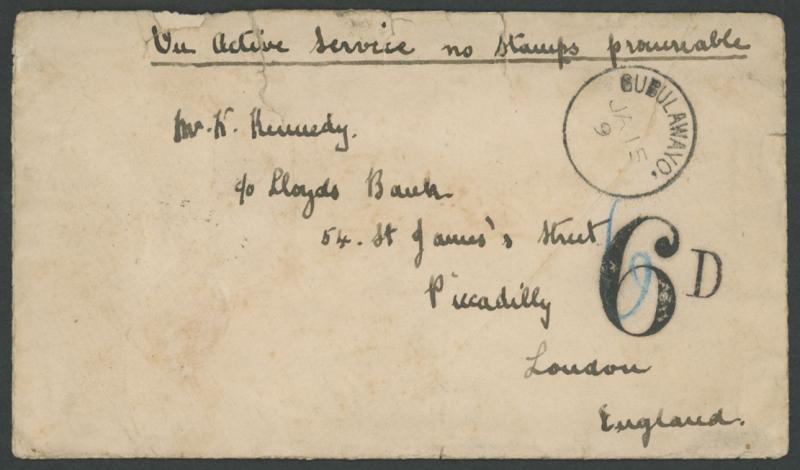 On Active Service no stamps procureable
BUBULAWAYO.
JA 15
9
Mr. K. Kennedy.
c/o Lloyds Bank
54. St James's Street
6 D
6
Piccadilly
London
England.